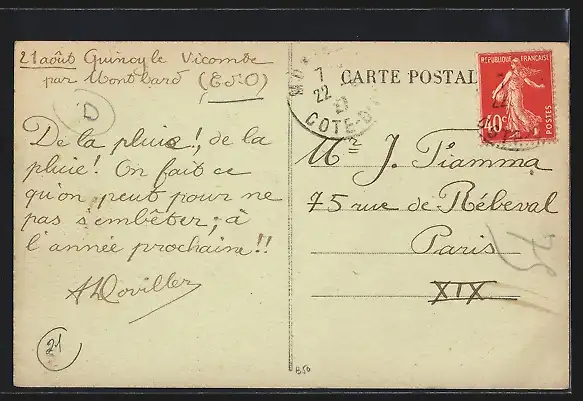 21 août Quincy le Vicomte
par Montbard (E.S.O)
D
De la pluie!, de la
pluie! On fait ce
qu'on peut pour ne
pas s'embêter; à
l'année prochaine!!
21
7
22
COTE-D
CARTE POSTALE
REPUBLIQUE FRANÇAISE
40c
POSTES
Mr J. Fiamma
75 rue de Rébeval
Paris
XIX
75
B50